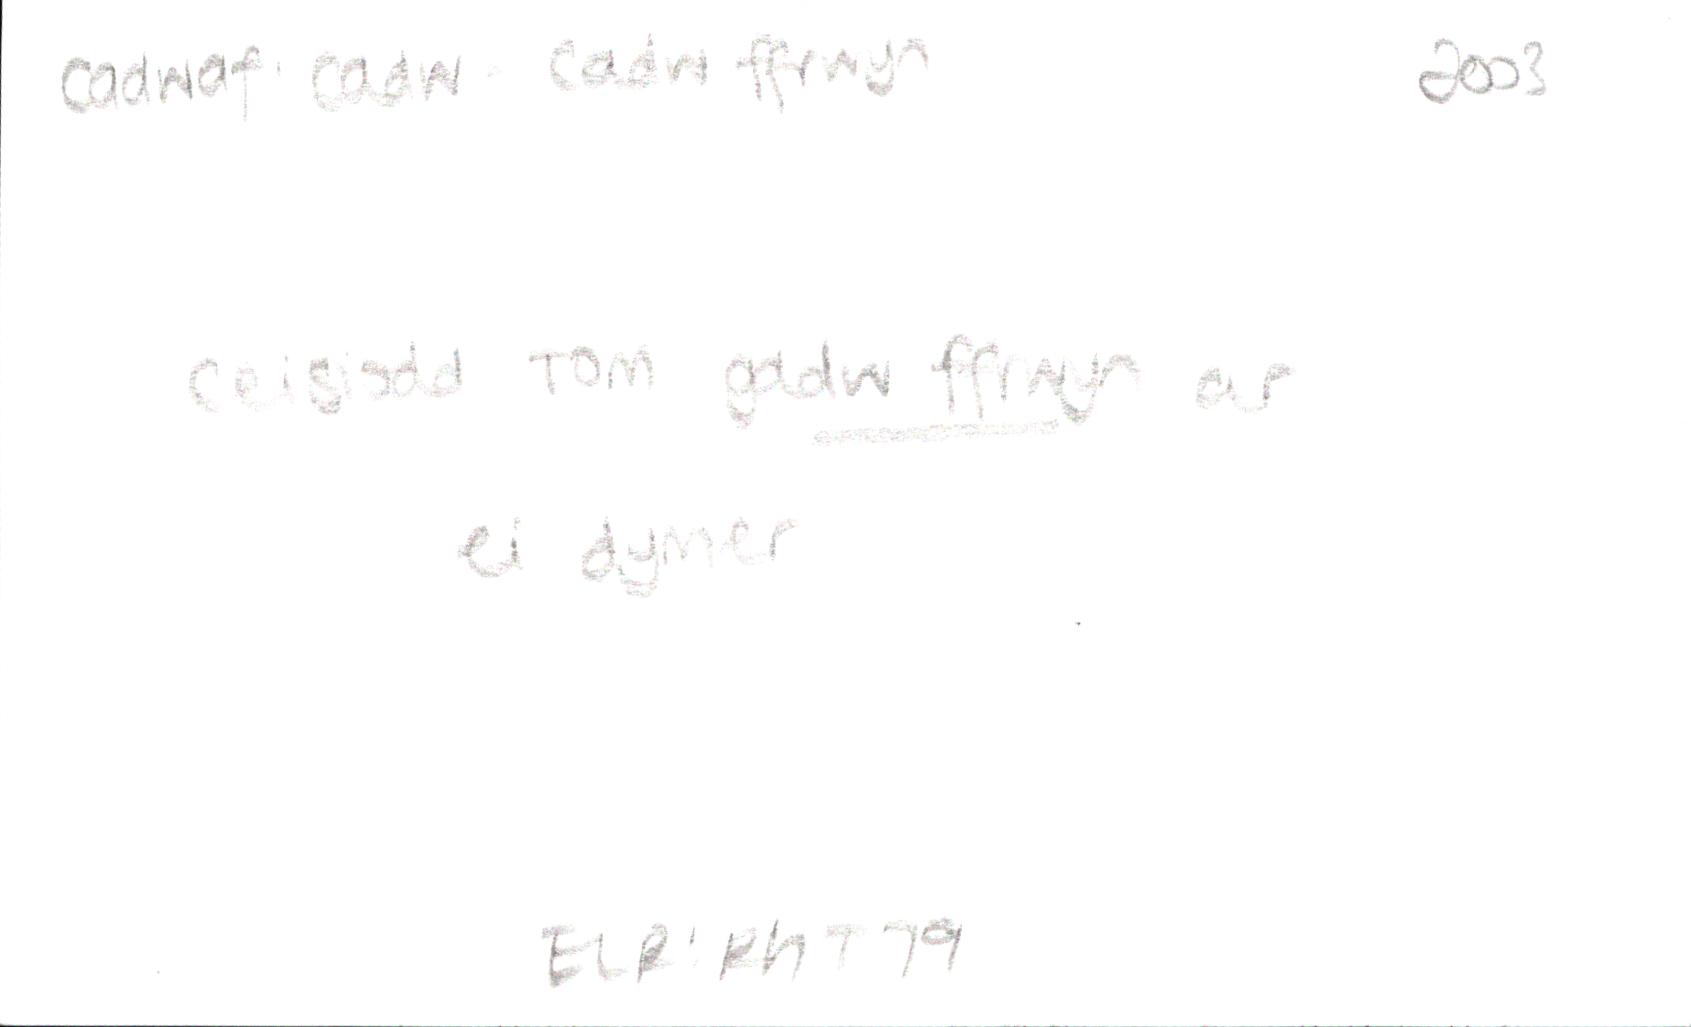 cadwaf: cadw - cadw ffrwyn 2003
ceisiodd TOM gadw ffrwyn ar
ei dymer
ELR: RhT 79